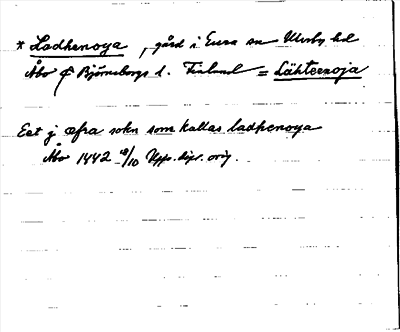 * Ladhenoya, gård i Eura sn Ulvsby hd
Åbo o Björneborgs l. Finland = Lähteenoja
Eet j æfra sokn som kallas ladhenoya
Åbo 1442 18/10 Upps. dipl. orig.